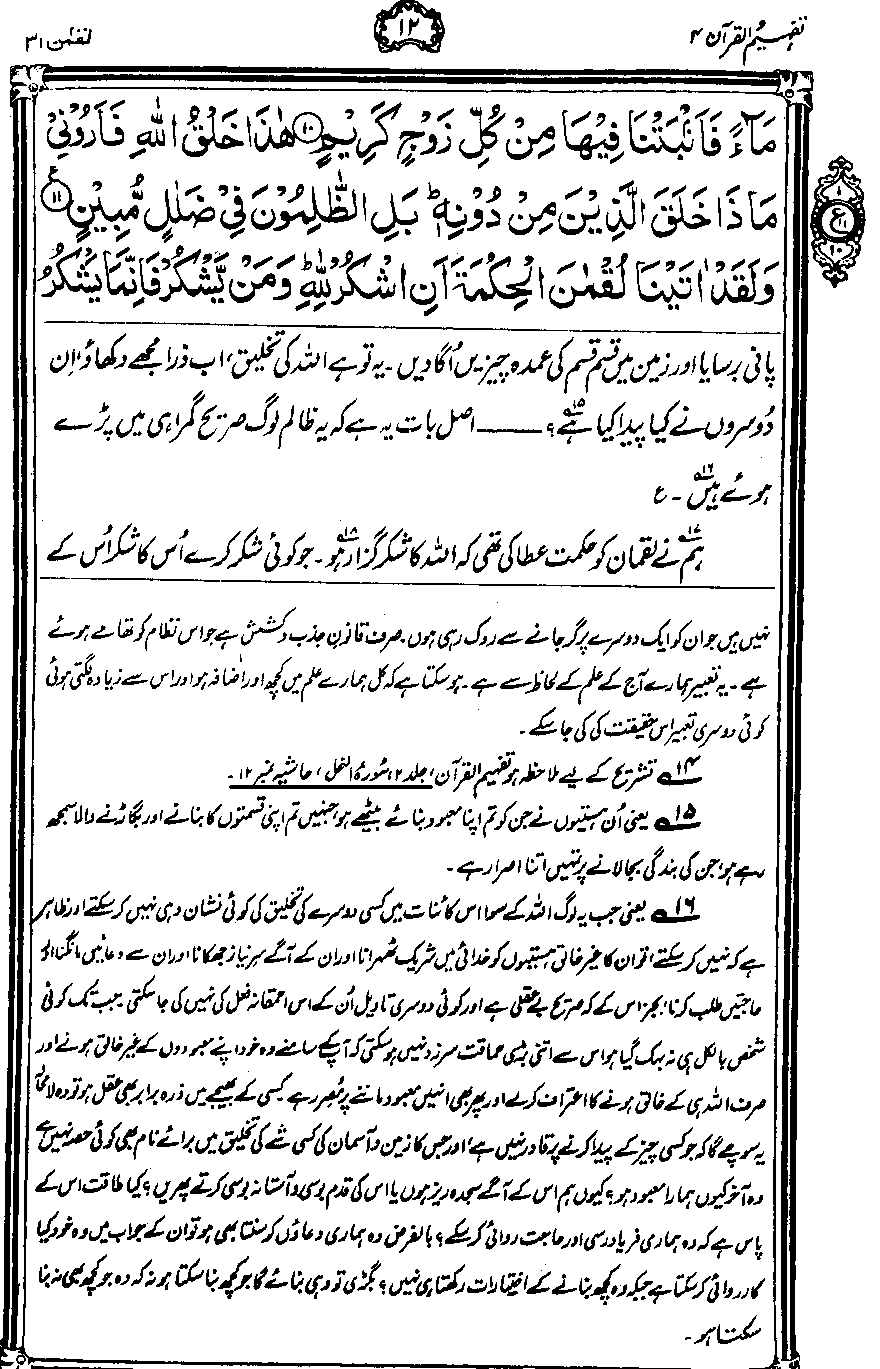 تفہیم القرآن ۴
۱۲
لقمٰن ۳۱
مَآءً فَاَنْۢبَتْنَا فِیْهَا مِنْ كُلِّ زَوْجٍ كَرِیْمٍ ۱۰ هٰذَا خَلْقُ اللّٰهِ فَاَرُوْنِیْ
مَاذَا خَلَقَ الَّذِیْنَ مِنْ دُوْنِهٖ ؕ بَلِ الظّٰلِمُوْنَ فِیْ ضَلٰلٍ مُّبِیْنٍ ۱۱ ع
وَلَقَدْ اٰتَیْنَا لُقْمٰنَ الْحِكْمَةَ اَنِ اشْكُرْ لِلّٰهِ ؕ وَمَنْ یَّشْكُرْ فَاِنَّمَا یَشْكُرُ
۱
ع
۱۱
۱۰
پانی برسایا اور زمین میں قسم قسم کی عمدہ چیزیں اُگا دیں۔ یہ تو ہے اللہ کی تخلیق، اب ذرا مجھے دکھاؤ، اِن
دُوسروں نے کیا پیدا کیا ہے؟۱۵ ــــــ اصل بات یہ ہے کہ یہ ظالم لوگ صریح گمراہی میں پڑے
ہوئے ہیں۱۶۔ ع
ہم۱۷ نے لقمان کو حکمت عطا کی تھی کہ اللہ کا شکر گزار ہو۱۸۔ جو کوئی شکر کرے اُس کا شکر اُس کے
نہیں ہیں جو ان کو ایک دوسرے پر گر جانے سے روک رہی ہوں۔ صرف قانونِ جذب و کشش ہے جو اس نظام کو تھامے ہوئے
ہے۔ یہ تعبیر ہمارے آج کے علم کے لحاظ سے ہے۔ ہو سکتا ہے کہ کل ہمارے علم میں کچھ اور اضافہ ہو اور اس سے زیادہ لگتی ہوئی
کوئی دوسری تعبیر اس حقیقت کی کی جا سکے۔
۱۴ تشریح کے لیے ملاحظہ ہو تفہیم القرآن، جلد ۲، سُورۂ النحل، حاشیہ نمبر ۱۲۔
۱۵ یعنی اُن ہستیوں نے جن کو تم اپنا معبود بنائے بیٹھے ہو، جنہیں تم اپنی قسمتوں کا بنانے اور بگاڑنے والا سمجھ
رہے ہو، جن کی بندگی بجا لانے پر تمہیں اتنا اصرار ہے۔
۱۶ یعنی جب یہ لوگ اللہ کے سوا اس کائنات میں کسی دوسرے کی تخلیق کی کوئی نشان دہی نہیں کر سکتے، اور ظاہر
ہے کہ نہیں کر سکتے، تو ان کا غیر خالق ہستیوں کو خدائی میں شریک ٹھہرانا اور ان کے آگے سرِ نیاز جھکانا اور ان سے دعائیں مانگنا اور
حاجتیں طلب کرنا، بجز اس کے کہ صریح بے عقلی ہے اور کوئی دوسری تاویل اُن کے اس احمقانہ فعل کی نہیں کی جا سکتی۔ جب تک کوئی
شخص بالکل ہی نہ بہک گیا ہو اس سے اتنی بڑی حماقت سرزد نہیں ہو سکتی کہ آپ کے سامنے وہ خود اپنے معبودوں کے غیر خالق ہونے اور
صرف اللہ ہی کے خالق ہونے کا اعتراف کرلے اور پھر بھی انہیں معبود ماننے پر مُصِر رہے۔ کسی کے بھیجے میں ذرہ برابر بھی عقل ہو تو وہ لا محالہ
یہ سوچے گا کہ جو کسی چیز کے پیدا کرنے پر قادر نہیں ہے، اور جس کا زمین و آسمان کی کسی شے کی تخلیق میں برائے نام بھی کوئی حصہ نہیں ہے
وہ آخر کیوں ہمارا معبود ہو؟ کیوں ہم اس کے آگے سجدہ ریز ہوں یا اس کی قدم بوسی و آستانہ بوسی کرتے پھریں؟ کیا طاقت اس کے
پاس ہے کہ وہ ہماری فریاد رسی اور حاجت روائی کر سکے؟ بالفرض وہ ہماری دعاؤں کو سنتا بھی ہو تو ان کے جواب میں وہ خود کیا
کارروائی کر سکتا ہے جبکہ وہ کچھ بنانے کے اختیارات رکھتا ہی نہیں؟ بگڑی تو وہی بنائے گا جو کچھ بنا سکتا ہو نہ کہ وہ جو کچھ بھی نہ بنا
سکتا ہو۔